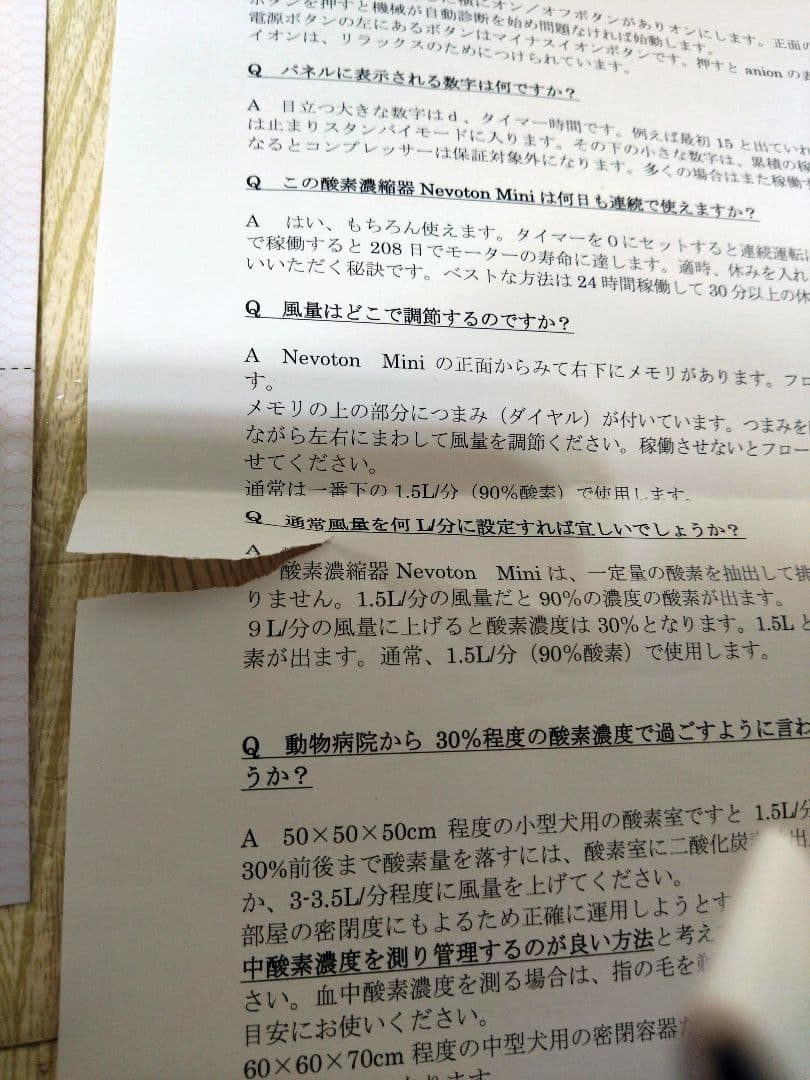 ボタンを押すと機械が自動診断を始め問題なければ始動します。正面の
電源ボタンの左にあるボタンはマイナスイオンボタンです。押すと anion の
イオンは、リラックスのためにつけられています。
Q パネルに表示される数字は何ですか？
A 目立つ大きな数字はd、タイマー時間です。例えば最初 15 と出ていれ
は止まりスタンバイモードに入ります。その下の小さな数字は、累積の稼
なるとコンプレッサーは保証対象外になります。多くの場合はまた稼働
Q この酸素濃縮器 Nevoton Mini は何日も連続で使えますか？
A はい、もちろん使えます。タイマーを０にセットすると連続運転に
で稼働すると 208 日でモーターの寿命に達します。適時、休みを入れ
いいただく秘訣です。ベストな方法は 24 時間稼働して 30 分以上の休
Q 風量はどこで調節するのですか？
A Nevoton Mini の正面からみて右下にメモリがあります。フロ
す。
メモリの上の部分につまみ（ダイヤル）が付いています。つまみを
ながら左右にまわして風量を調節ください。稼働させないとフロー
せてください。
通常は一番下の 1.5L/分（90%酸素）で使用します。
Q 通常風量を何 L/分に設定すれば宜しいでしょうか？
A
酸素濃縮器 Nevoton Mini は、一定量の酸素を抽出して排
りません。1.5L/分の風量だと 90%の濃度の酸素が出ます。
９L/分の風量に上げると酸素濃度は 30%となります。1.5L と
素が出ます。通常、1.5L/分（90%酸素）で使用します。
Q 動物病院から 30%程度の酸素濃度で過ごすように言わ
うか？
A 50×50×50cm 程度の小型犬用の酸素室ですと 1.5L/分
30%前後まで酸素量を落すには、酸素室に二酸化炭
か、3-3.5L/分程度に風量を上げてください。
部屋の密閉度にもよるため正確に運用しようとす
中酸素濃度を測り管理するのが良い方法と考え
さい。血中酸素濃度を測る場合は、指の毛を
目安にお使いください。
60×60×70cm 程度の中型犬用の密閉容器